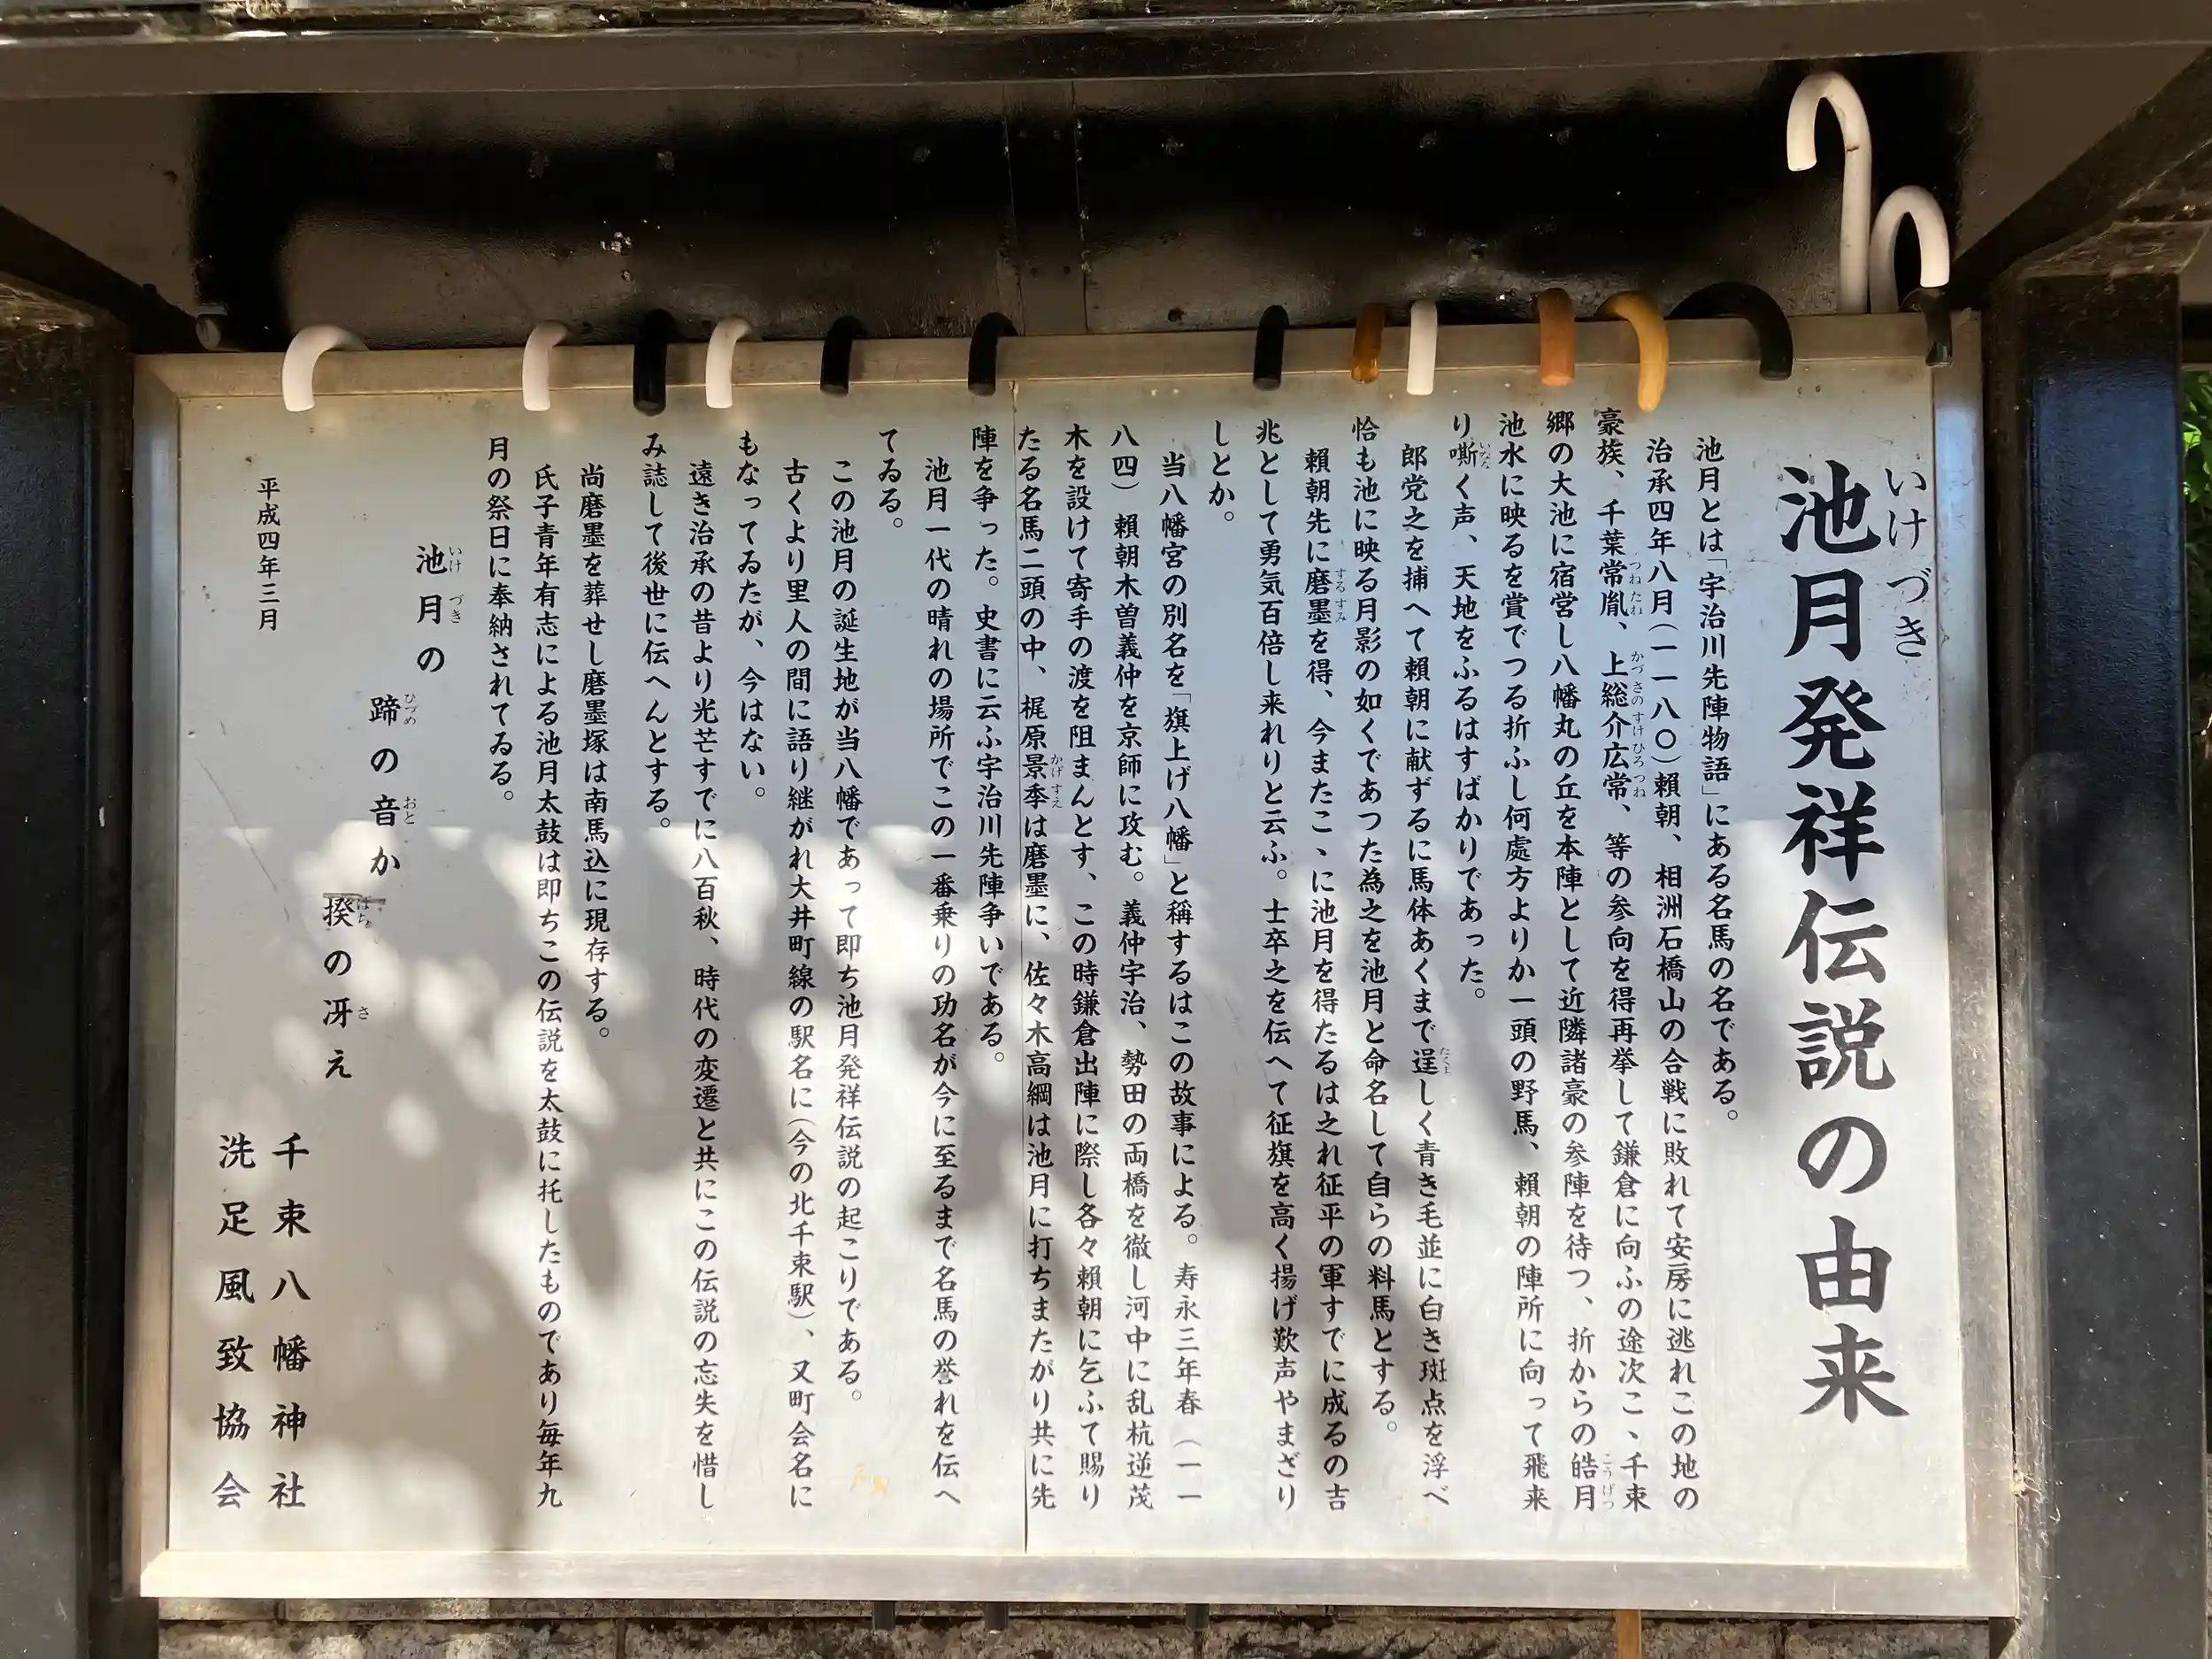 池月発祥伝説の由来
いけづき
池月とは「宇治川先陣物語」にある名馬の名である。
治承四年八月(一一八〇)頼朝、相洲石橋山の合戦に敗れて安房に逃れこの地の
豪族、千葉常胤、上総介広常、等の参向を得再挙して鎌倉に向ふの途次こゝ千束
つねたね かづさのすけひろつね
郷の大池に宿営し八幡丸の丘を本陣として近隣諸豪の参陣を待つ、折からの皓月
こうげつ
池水に映るを賞でつる折ふし何處方よりか一頭の野馬、頼朝の陣所に向って飛来
り嘶く声、天地をふるはすばかりであった。
いなな
郎党之を捕へて頼朝に献ずるに馬体あくまで逞しく青き毛並に白き斑点を浮べ
たくま
恰も池に映る月影の如くであつた為之を池月と命名して自らの料馬とする。
頼朝先に磨墨を得、今またこゝに池月を得たるは之れ征平の軍すでに成るの吉
するすみ
兆として勇気百倍し来れりと云ふ。士卒之を伝へて征旗を高く揚げ歓声やまざり
しとか。
当八幡宮の別名を「旗上げ八幡」と稱するはこの故事による。寿永三年春(一一
八四)頼朝木曽義仲を京師に攻む。義仲宇治、勢田の両橋を徹し河中に乱杭逆茂
木を設けて寄手の渡を阻まんとす、この時鎌倉出陣に際し各々頼朝に乞ふて賜り
たる名馬二頭の中、梶原景季は磨墨に、佐々木高綱は池月に打ちまたがり共に先
かげすえ
陣を争った。史書に云ふ宇治川先陣争いである。
池月一代の晴れの場所でこの一番乗りの功名が今に至るまで名馬の誉れを伝へ
てゐる。
この池月の誕生地が当八幡であって即ち池月発祥伝説の起こりである。
古くより里人の間に語り継がれ大井町線の駅名に(今の北千束駅)、又町会名に
もなってゐたが、今はない。
遠き治承の昔より光芒すでに八百秋、時代の変遷と共にこの伝説の忘失を惜し
み誌して後世に伝へんとする。
尚磨墨を葬せし磨墨塚は南馬込に現存する。
氏子青年有志による池月太鼓は即ちこの伝説を太鼓に托したものであり毎年九
月の祭日に奉納されてゐる。
池月の
いけづき
蹄の音か
ひづめ おと
揆の冴え
ばち さ
平成四年三月
千束八幡神社
洗足風致協会